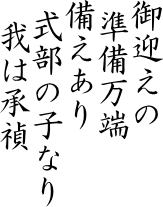 御迎えの
準備万端
備えあり
式部の子なり
我は承禎